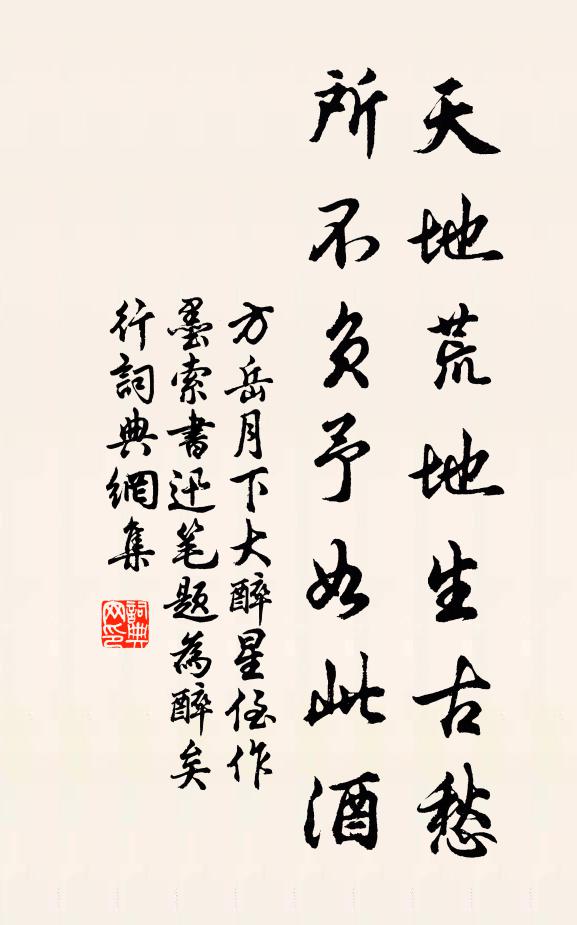 天地荒地生古愁
所不負予如此酒
方岳月下大醉星侄作
墨索書迅笔題為醉矣
行詞典網集
詞典网印